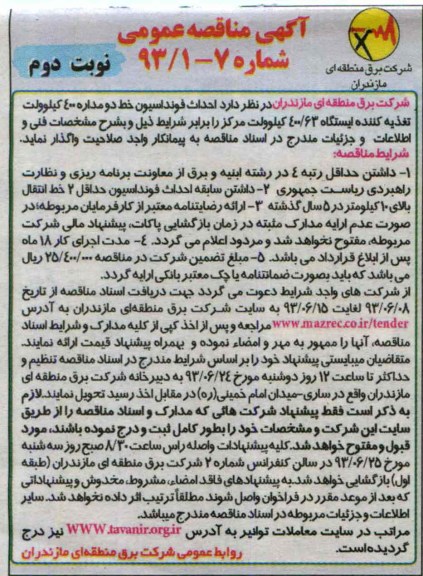 آگهی مناقصه عمومی
شماره ۷-۹۳/۱
نوبت دوم
شرکت برق منطقه‌ای
مازندران
شرکت برق منطقه ای مازندران در نظر دارد احداث فونداسیون خط دو مداره ۴۰۰ کیلوولت
تغذیه کننده ایستگاه ۴۰۰/۶۳ کیلوولت مرکز را برابر شرایط ذیل و بشرح مشخصات فنی و
اطلاعات و جزئیات مندرج در اسناد مناقصه به پیمانکار واجد صلاحیت واگذار نماید.
شرایط مناقصه:
۱- داشتن حداقل رتبه ٤ در رشته ابنیه و برق از معاونت برنامه ریزی و نظارت
راهبردی ریاست جمهوری ۲-داشتن سابقه احداث فونداسیون حداقل ۲ خط انتقال
بالای ۱۰ کیلومتر در ۵ سال گذشته ۳- ارائه رضایتنامه معتبر از کارفرمایان مربوطه؛در
صورت عدم ارایه مدارک مثبته در زمان بازگشایی پاکات، پیشنهاد مالی شرکت
مربوطه، مفتوح نخواهد شد و مردود اعلام می گردد. ٤- مدت اجرای کار ۱۸ ماه
پس از ابلاغ قرارداد می باشد. ۵- مبلغ تضمین شرکت در مناقصه ۲۵/۴۰۰/۰۰۰ ریال
می باشد که باید بصورت ضمانتنامه یا چک معتبر بانکی ارایه گردد.
از شرکت های واجد شرایط دعوت می گردد جهت دریافت اسناد مناقصه از تاریخ
۹۳/۰۶/۰۸ لغایت ۹۳/۰۶/۱۵ به سایت شرکت برق منطقه‌ای مازندران به آدرس
www.mazrec.co.ir/tender مراجعه و پس از اخذ کپی از کلیه مدارک و شرایط اسناد
مناقصه، آنها را ممهور به مهر و امضاء نموده و بهمراه پیشنهاد قیمت ارائه نمایند.
متقاضیان میبایستی پیشنهاد خود را بر اساس شرایط مندرج در اسناد مناقصه تنظیم و
حداکثر تا ساعت ۱۲ روز دوشنبه مورخ ۹۳/۰۶/۲٤ به دبیرخانه شرکت برق منطقه ای
مازندران واقع در ساری-میدان امام خمینی(ره) در مقابل اخذ رسید تحویل نمایند.لازم
به ذکر است فقط پیشنهاد شرکت هائی که مدارک و اسناد مناقصه را از طریق
سایت این شرکت و مشخصات خود را بطور کامل ثبت و درج نموده باشند، مورد
قبول و مفتوح خواهد شد. کلیه پیشنهادات واصله راس ساعت ۸/۳۰ صبح روز سه شنبه
مورخ ۹۳/۰۶/۲۵ در سالن کنفرانس شماره ۲ شرکت برق منطقه ای مازندران (طبقه
اول) بازگشایی خواهد شد.به پیشنهادهای فاقد امضاء، مشروط، مخدوش و پیشنهاداتی
که بعد از موعد مقرر در فراخوان واصل شوند مطلقاً ترتیب اثر داده نخواهد شد. سایر
اطلاعات و جزئیات مربوطه در اسناد مناقصه مندرج میباشد.
مراتب در سایت معاملات توانیر به آدرس WWW.tavanir.org.ir نیز درج
گردیده است.
روابط عمومی شرکت برق منطقه‌ای مازندران